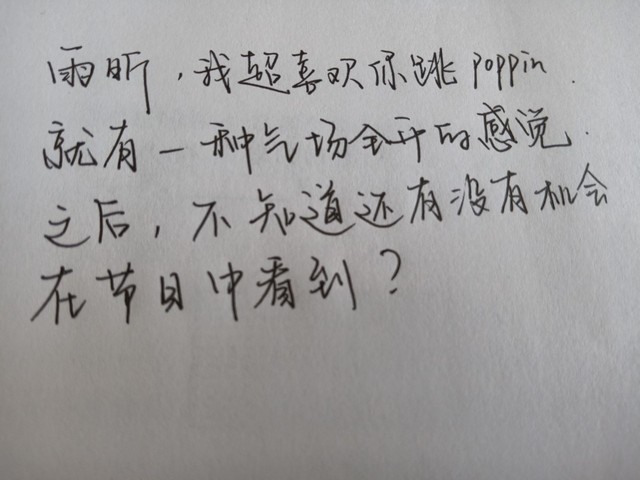 雨昕，我超喜欢你跳poppin.
就有一种气场全开的感觉.
之后，不知道还有没有机会
在节目中看到？